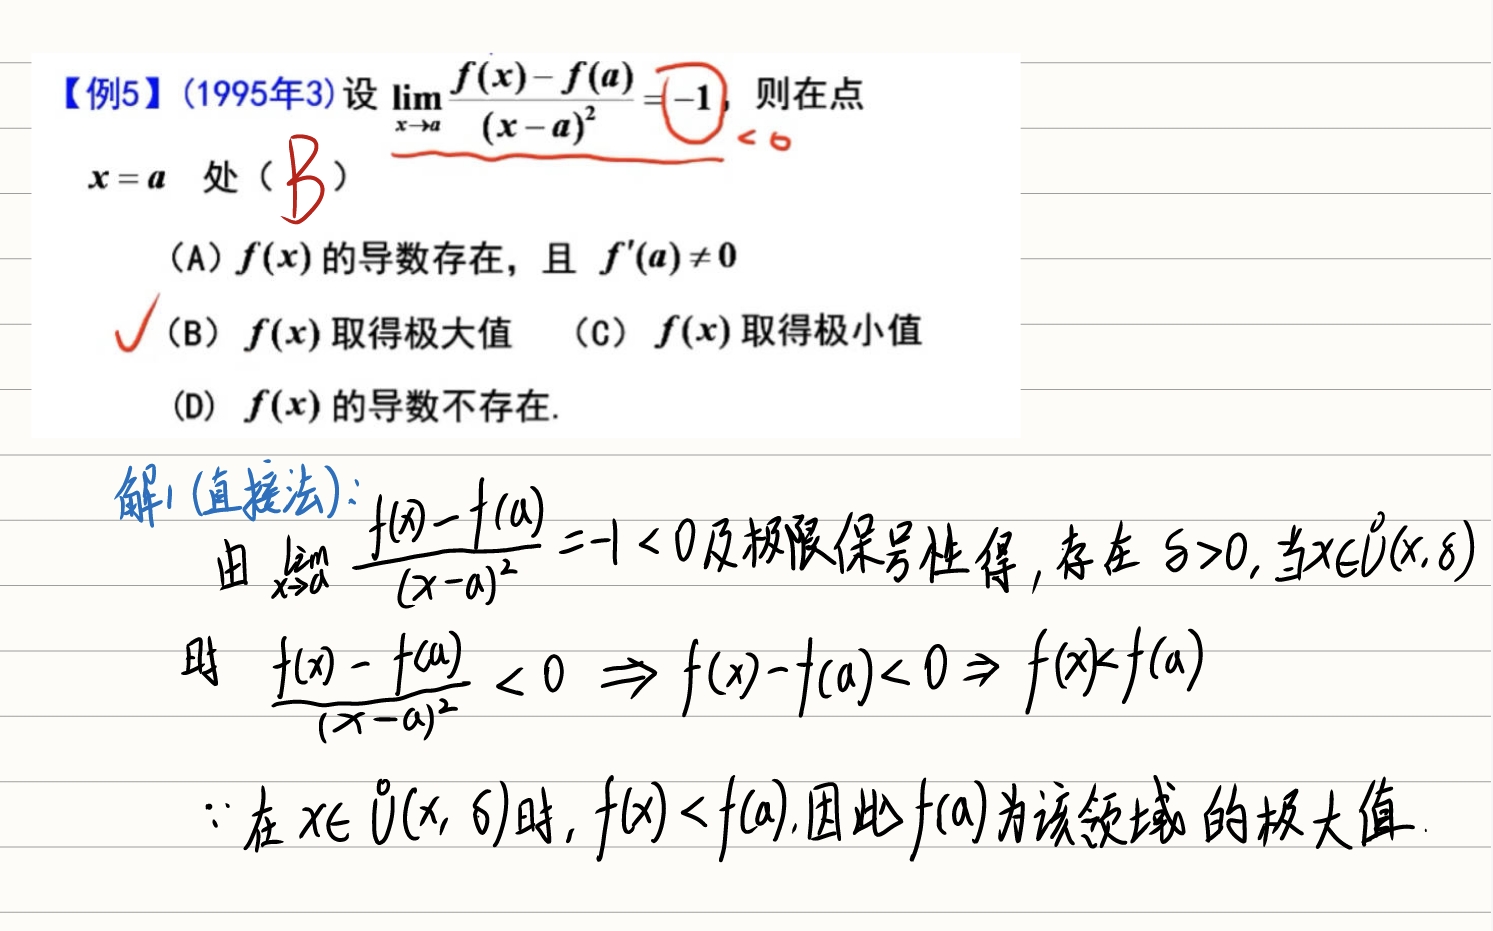 【例5】(1995年3)设 lim_{x→a} (f(x)-f(a))/(x-a)² = -1，则在点
< 0
x = a 处（B）
（A）f(x) 的导数存在，且 f'(a) ≠ 0
✓（B） f(x) 取得极大值 （C） f(x) 取得极小值
(D) f(x) 的导数不存在.
解1(直接法):
由 lim_{x→a} (f(x)-f(a))/(x-a)² = -1 < 0 及极限保号性得, 存在 δ>0, 当x∈Ů(x,δ)
时 (f(x)-f(a))/(x-a)² < 0 ⇒ f(x)-f(a)<0 ⇒ f(x)<f(a)
∵ 在 x∈Ů(x,δ)时, f(x)<f(a).因此f(a)为该领域的极大值.